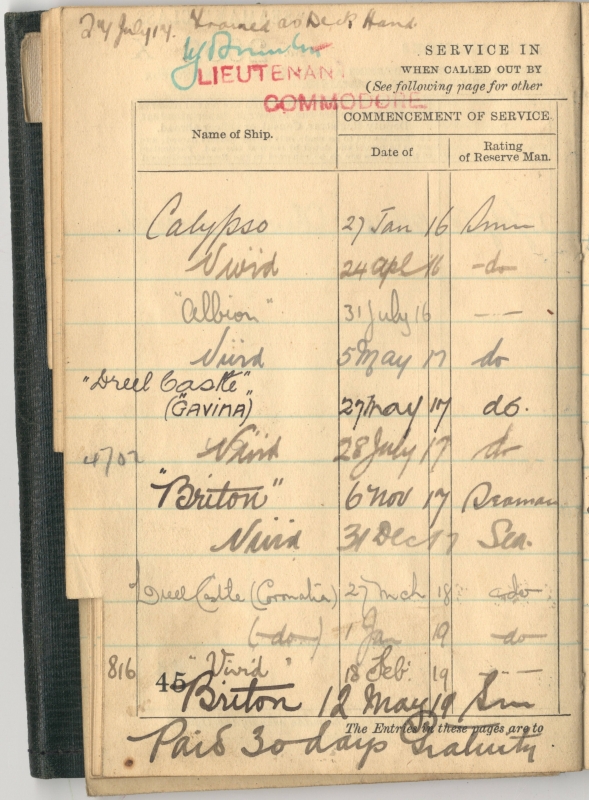 24 July 17. Trained as Deck Hand.
LIEUTENAN
COMMODORE
SERVICE IN
WHEN CALLED OUT BY
(See following page for other
COMMENCEMENT OF SERVICE.
Name of Ship. Date of Rating of Reserve Man.
Calypso 27 Jan 16 Smn
Vivid 24 Apl 16 -do-
"Albion" 31 July 16 —
Vivid 5 May 17 do
"Dreel Castle"
(GAVINA) 27 May 17 do.
4702
Vivid 28 July 17 do
"Briton" 6 Nov 17 Seaman
Vivid 31 Dec 17 Sea.
Dreel Castle (Coronatia) 27 Mch 18 -do-
(-do-) 1 Jan 19 -do-
816 "Vivid" 18 Feb. 19 —
45
Briton 12 May 19 Smn
The Entries in these pages are to
Paid 30 days Gratuity